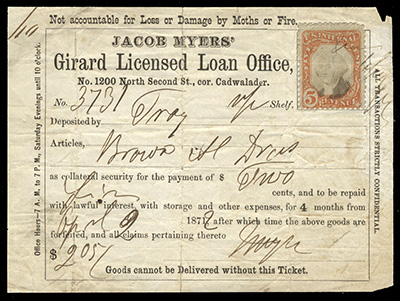 Not accountable for Loss or Damage by Moths or Fire.
JACOB MYERS'
Girard Licensed Loan Office,
No. 1200 North Second St., cor. Cadwalader.
No. 3731 Shelf.
Deposited by Troy
Articles, Brown Dress
as collateral security for the payment of $ Two
cents, and to be repaid
with lawful interest, with storage and other expenses, for 4 months from
April 9 1872 after which time the above goods are
forfeited, and all claims pertaining thereto
$2.05
Goods cannot be Delivered without this Ticket.
Office Hours—7 A. M. to 7 P. M., Saturday Evenings until 10 o'clock.
ALL TRANSACTIONS STRICTLY CONFIDENTIAL.
U.S. INTER. REVENUE
5